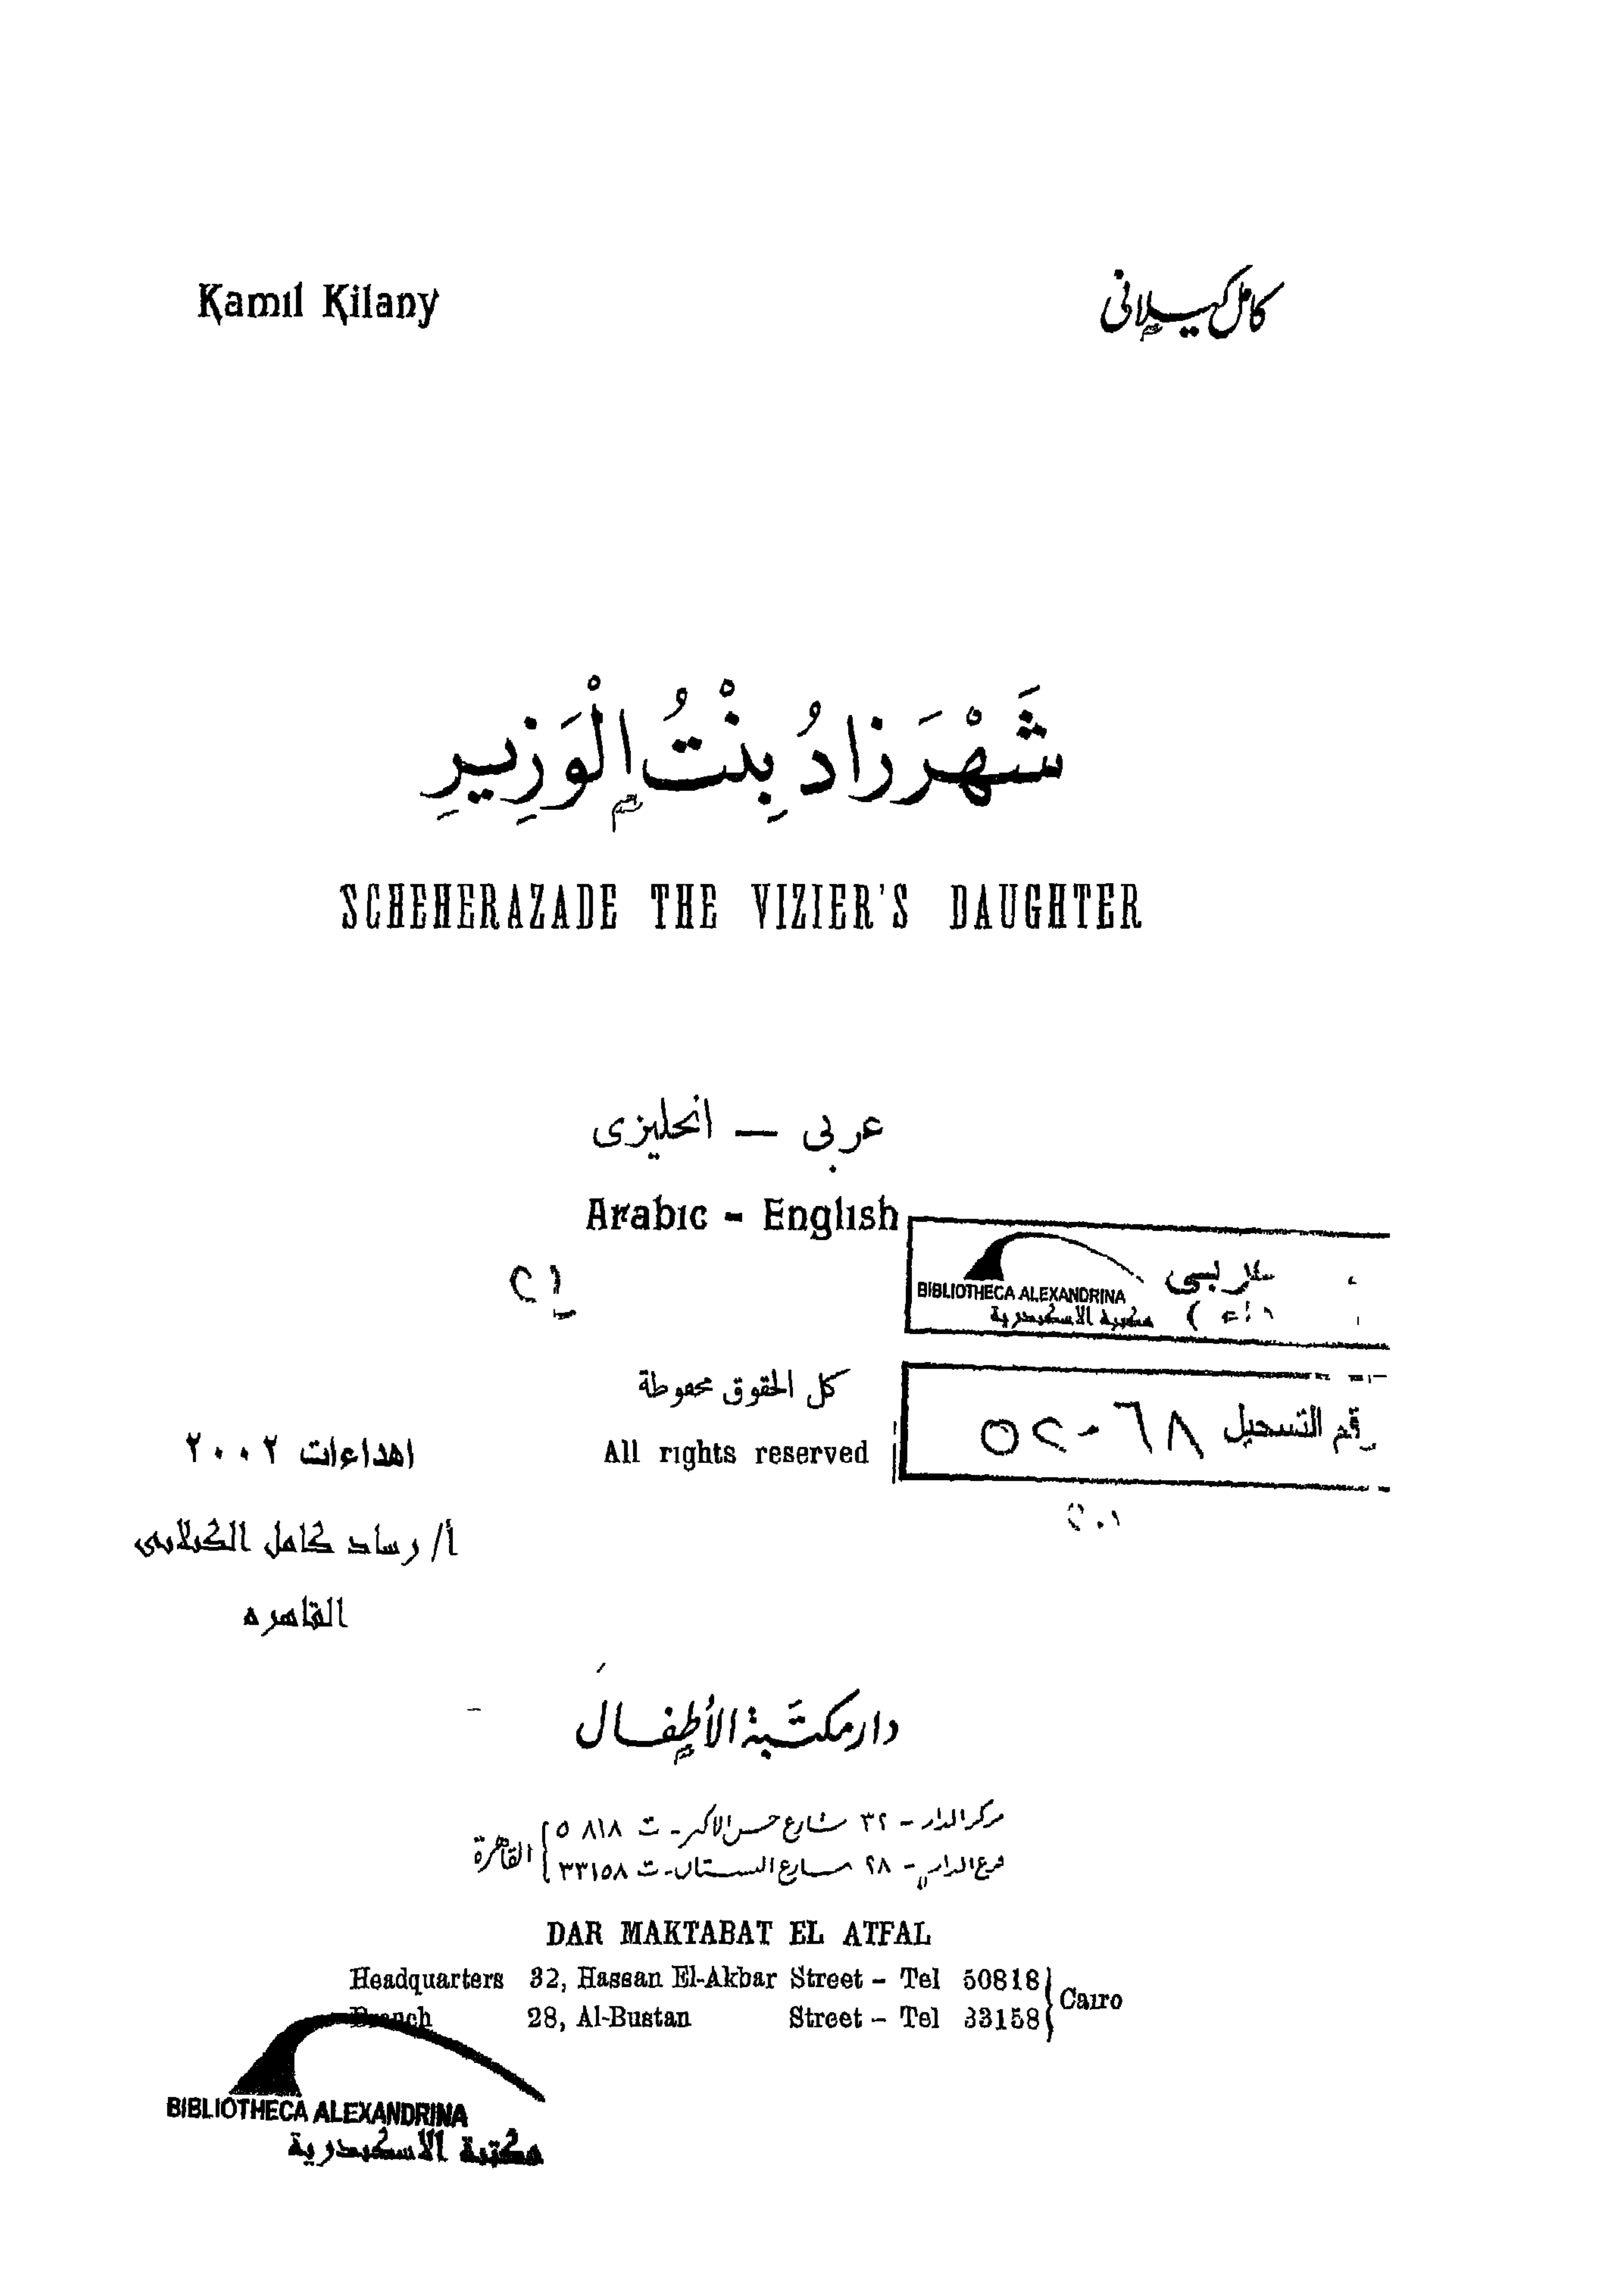 Kamil Kilany
كامل كيلانى
شَهْرَزَادُ بِنْتُ الْوَزِيرِ
SCHEHERAZADE THE VIZIER'S DAUGHTER
عربى — انجليزى
Arabic - English
BIBLIOTHECA ALEXANDRINA
مكتبة الاسكندرية
كل الحقوق محفوظة
All rights reserved
رقم التسجيل ٥٢٠٦٨
اهداءات ٢٠٠٢
أ/ رشاد كامل الكيلانى
القاهره
دار مكتبة الأطفال
مركز الدار - ٣٢ شارع حسن الاكبر - ت ٥٠٨١٨
فرع الدار - ٢٨ شارع البستان - ت ٣٣١٥٨
القاهرة
DAR MAKTABAT EL ATFAL
Headquarters 32, Hassan El-Akbar Street - Tel 50818
Branch 28, Al-Bustan Street - Tel 33158
Cairo
BIBLIOTHECA ALEXANDRINA
مكتبة الاسكندرية